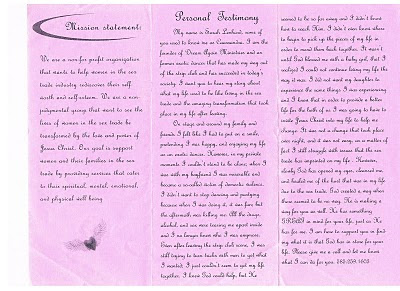 Mission statement:
We are a non for profit organization
that wants to help women in the sex
trade industry rediscover their self
worth and self esteem. We are a non
judgmental group that want to see the
lives of women in the sex trade be
transformed by the love and power of
Jesus Christ. Our goal is support
women and their families in the sex
trade by providing services that cater
to their spiritual, mental, emotional,
and physical well being
Personal Testimony
My name is Sarah
used to know me as Cassandra. I am the
founder of Dream Again Ministries and am
former exotic dancer that has made my way out
of the strip club and has succeeded in today's
society. I want you to hear my story about
what my life used to be like living in the sex
trade and the amazing transformation that took
place in my life after leaving.
On stage and around my family and
friends I felt like I had to put on a smile,
pretending I was happy, and enjoying my life
as an exotic dancer. However, in my private
moments I couldn't stand to be alone; when I
was with my boyfriend I was miserable and
became a so-called victim of domestic violence.
I didn't want to stop dancing and partying
because when I was doing it, it was fun; but
the aftermath was killing me. All the drugs,
alcohol, and sex were tearing me apart inside
and I no longer knew who I was anymore.
Even after leaving the strip club scene, I was
still trying to turn tricks with men to get what
I wanted. I just couldn't seem to get my life
together. I knew God could help, but He
seemed to be so far away and I didn't know
how to reach Him. I didn't even know where
to begin to pick up the pieces of my life in
order to mend them back together. It wasn't
until God blessed me with a baby girl, that I
realized I could not continue living my life the
way it was. I did not want my daughter to
experience the same things I was experiencing
and I knew that in order to provide a better
life for the both of us, I was going to have to
invite Jesus Christ into my life to help me
change. It was not a change that took place
over night, and it was not easy, as a matter of
fact I still struggle with issues that the sex
trade has imprinted on my life. However,
slowly God has opened my eyes, cleansed me,
and healed me of the hurt that was in my life
due to the sex trade. God created a way when
there seemed to be no way. He is making a
way for you as well. He has something
GREAT in mind for your life, just as He
has for me. I am here to support you in find-
ing what it is that God has in store for your
life. Please give me a call and let me know
what I can do for you.